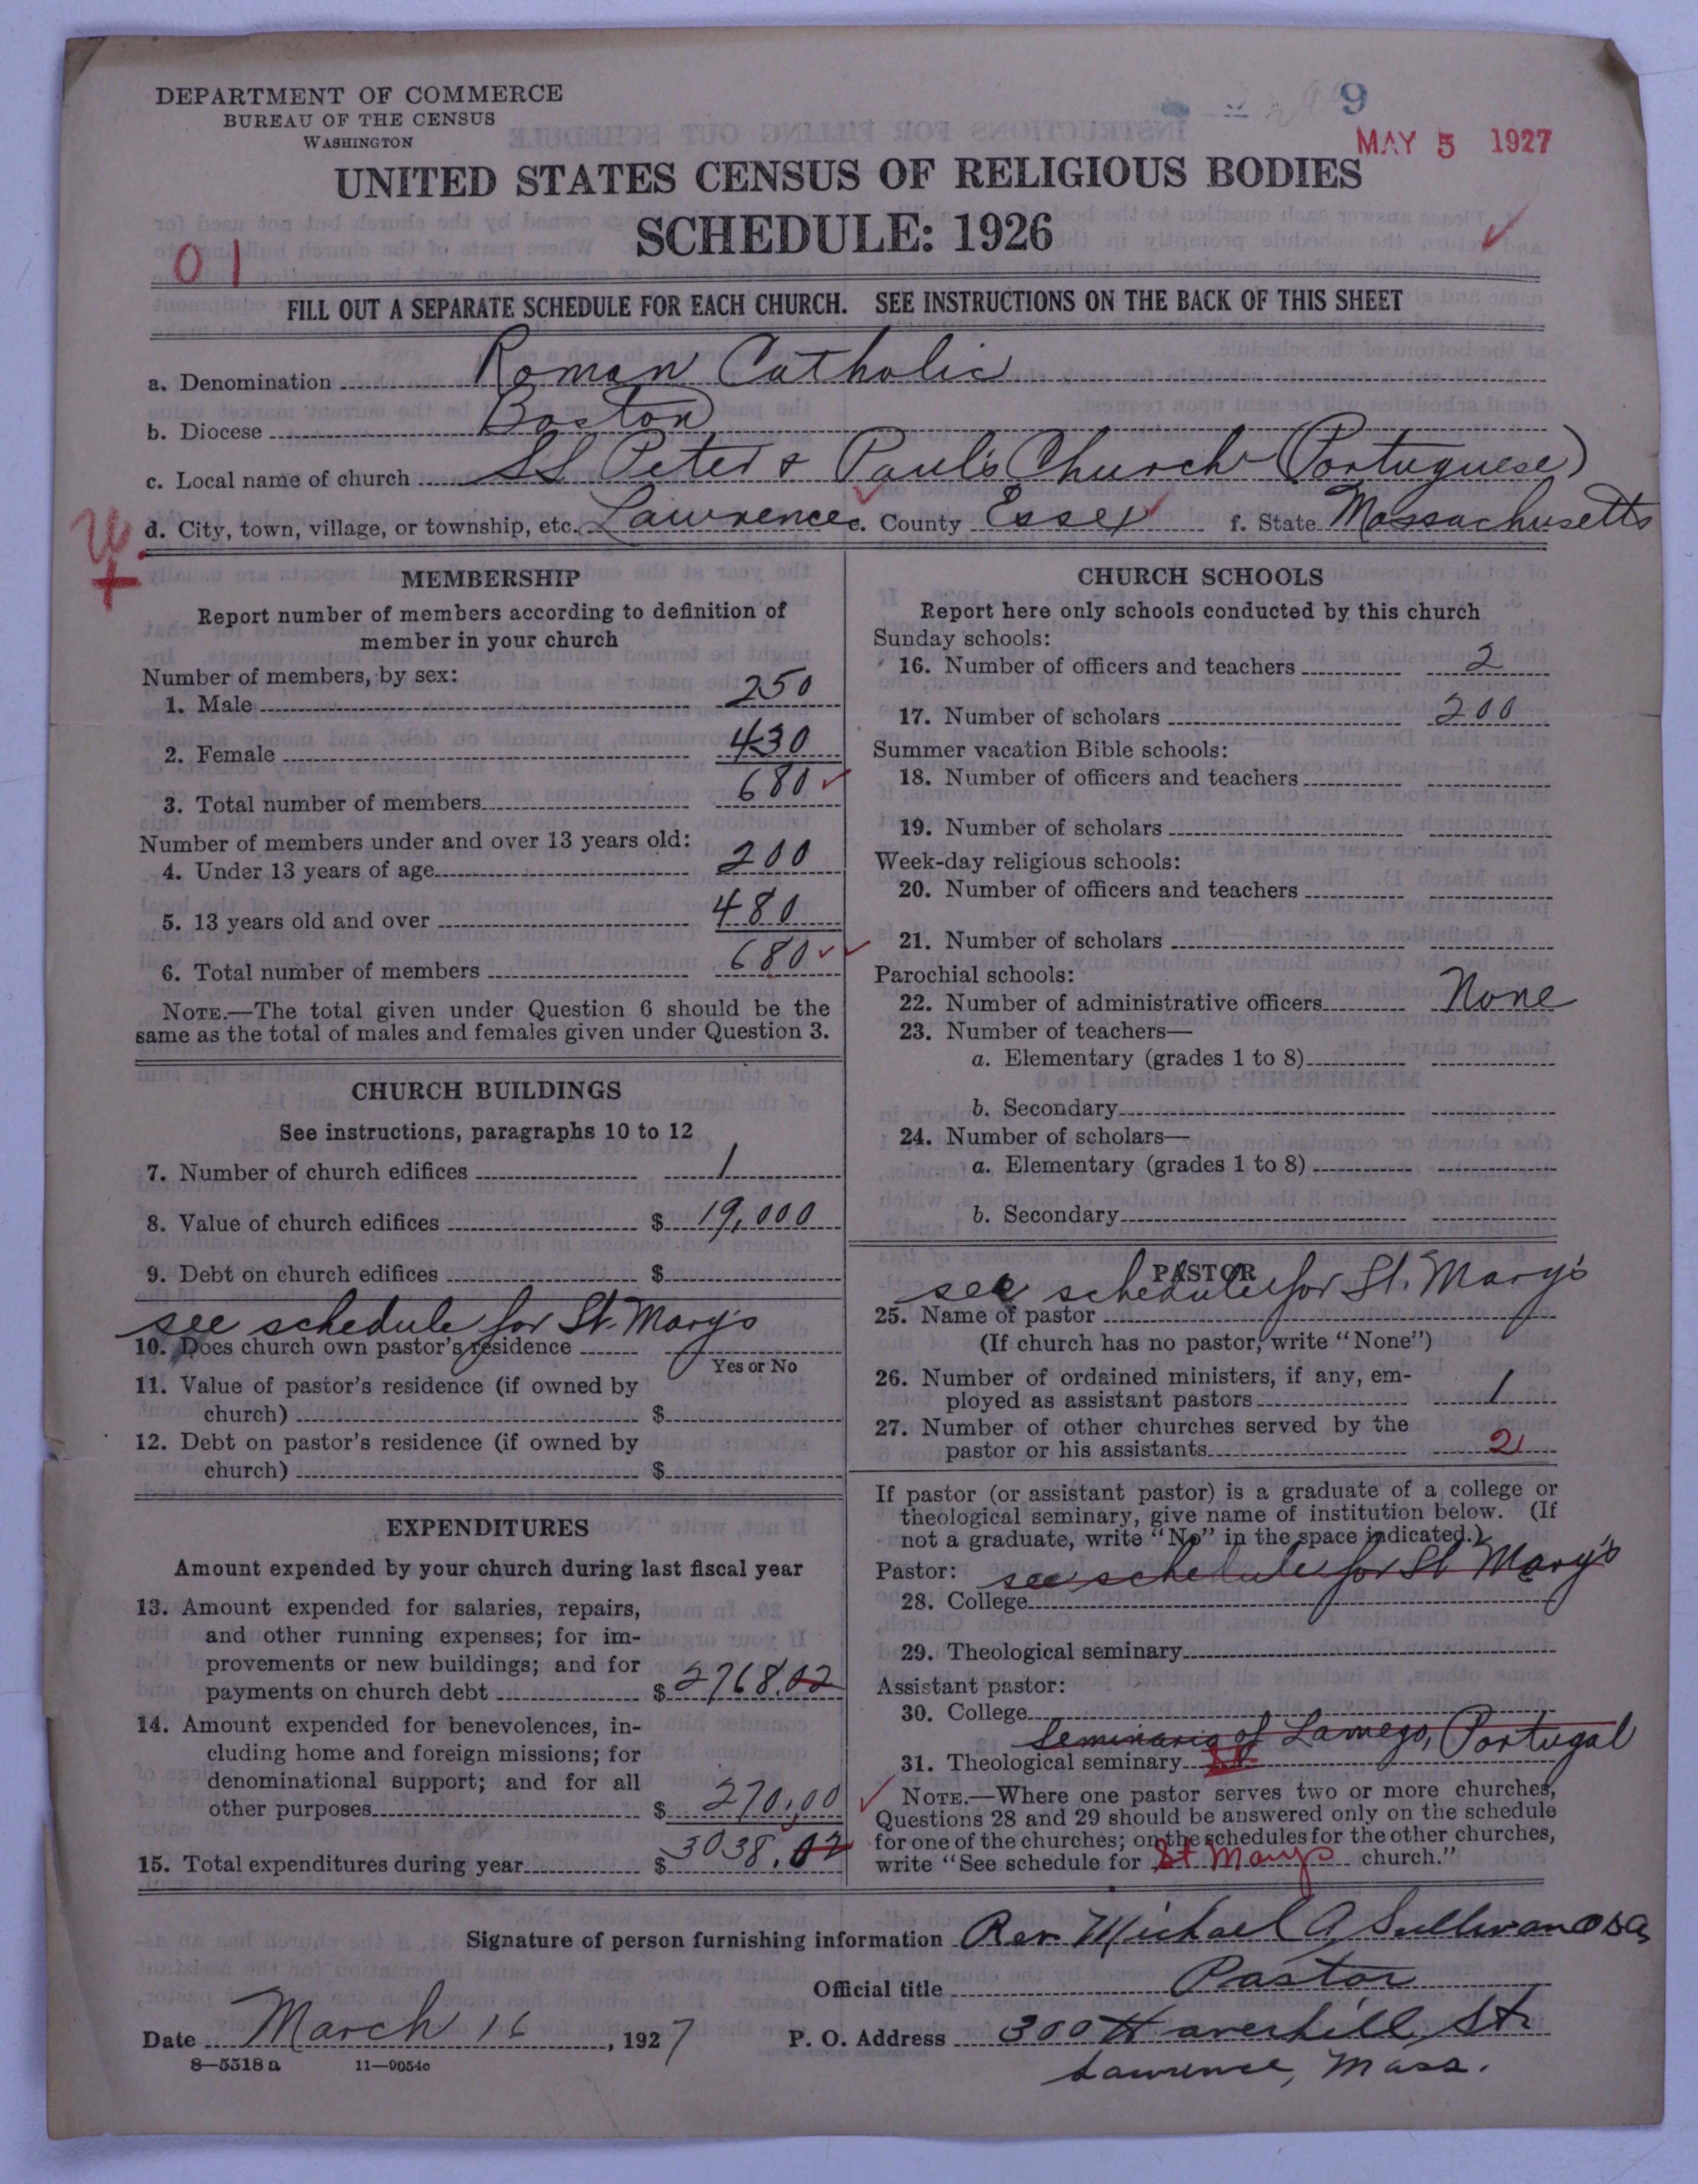 DEPARTMENT OF COMMERCE
BUREAU OF THE CENSUS
WASHINGTON
9
MAY 5 1927
UNITED STATES CENSUS OF RELIGIOUS BODIES
SCHEDULE: 1926
01
FILL OUT A SEPARATE SCHEDULE FOR EACH CHURCH. SEE INSTRUCTIONS ON THE BACK OF THIS SHEET
a. Denomination Roman Catholic
b. Diocese Boston
c. Local name of church SS Peter & Paul's Church (Portuguese)
d. City, town, village, or township, etc. Lawrence e. County Essex f. State Massachusetts
MEMBERSHIP
Report number of members according to definition of
member in your church
Number of members, by sex:
1. Male 250
2. Female 430
3. Total number of members 680
Number of members under and over 13 years old:
4. Under 13 years of age 200
5. 13 years old and over 480
6. Total number of members 680
NOTE.—The total given under Question 6 should be the
same as the total of males and females given under Question 3.
CHURCH BUILDINGS
See instructions, paragraphs 10 to 12
7. Number of church edifices 1
8. Value of church edifices $ 19,000
9. Debt on church edifices $
see schedule for St. Mary's
10. Does church own pastor's residence
Yes or No
11. Value of pastor's residence (if owned by
church) $
12. Debt on pastor's residence (if owned by
church) $
EXPENDITURES
Amount expended by your church during last fiscal year
13. Amount expended for salaries, repairs,
and other running expenses; for im-
provements or new buildings; and for
payments on church debt $ 2768.02
14. Amount expended for benevolences, in-
cluding home and foreign missions; for
denominational support; and for all
other purposes $ 270,00
15. Total expenditures during year $ 3038.02
CHURCH SCHOOLS
Report here only schools conducted by this church
Sunday schools:
16. Number of officers and teachers 2
17. Number of scholars 200
Summer vacation Bible schools:
18. Number of officers and teachers
19. Number of scholars
Week-day religious schools:
20. Number of officers and teachers
21. Number of scholars
Parochial schools:
22. Number of administrative officers None
23. Number of teachers—
a. Elementary (grades 1 to 8)
b. Secondary
24. Number of scholars—
a. Elementary (grades 1 to 8)
b. Secondary
PASTOR
see schedule for St. Mary's
25. Name of pastor
(If church has no pastor, write "None")
26. Number of ordained ministers, if any, em-
ployed as assistant pastors 1
27. Number of other churches served by the
pastor or his assistants 2
If pastor (or assistant pastor) is a graduate of a college or
theological seminary, give name of institution below. (If
not a graduate, write "No" in the space indicated.)
Pastor: see schedule for St Mary's
28. College
29. Theological seminary
Assistant pastor:
30. College
Seminario of Lamego, Portugal
31. Theological seminary
NOTE.—Where one pastor serves two or more churches,
Questions 28 and 29 should be answered only on the schedule
for one of the churches; on the schedules for the other churches,
write "See schedule for St Marys church."
Signature of person furnishing information Rev. Michael A Sullivan OSA
Official title Pastor
Date March 16, 1927 P. O. Address 300 Haverhill St.
Lawrence, Mass.
8—5518 a 11—9054c